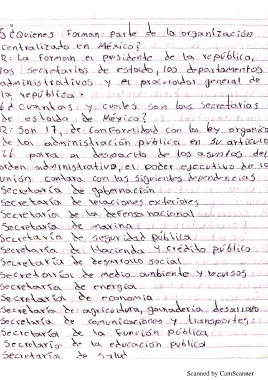 5 ¿Quienes Forman parte de la organización
centralizado en México?
R: La Forman el presidente de la república,
los secretarios de estado, los departamentos
administrativos y el procurador general de
la república.
6 ¿Cuantas y cuales son las secretarias
de estado de México?
R: Son 17, de conformidad con la ley organica
de la administración publica en su articulo
26 para el despacho de los asuntos del
orden administrativo, el poder ejecutivo de la
unión contara con las siguientes dependencias
Secretaría de gobernación
Secretaria de relaciones exteriores
Secretaria de la defensa nacional
Secretaria de marina
Secretaria de seguridad pública
Secretaria de Hacienda y crédito público
Secretaria de desarrollo social
Secretarios de medio ambiente y recursos
Secretaria de energia
Secretaria de economia
Secretaria de agricultura, ganaderia desarrollo
Secretaria de comunicaciones y transportes
Secretaria de la Función pública
Secretarios de la educación publica
Secretaria de salud
Scanned by CamScanner